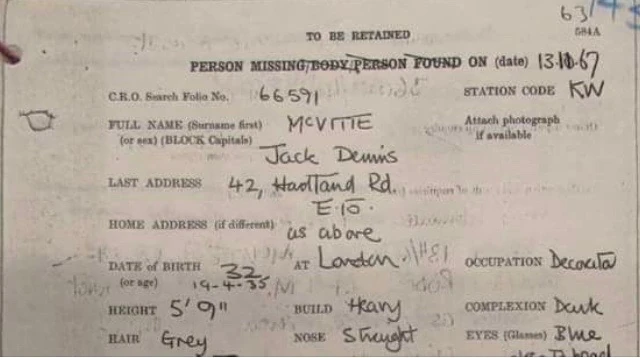 63/43
584A
TO BE RETAINED
PERSON MISSING/BODY/PERSON FOUND ON (date) 13-10-67
C.R.O. Search Folio No. 66591 STATION CODE KW
FULL NAME (Surname first) McVITIE Attach photograph
(or sex) (BLOCK Capitals) if available
Jack Dennis
LAST ADDRESS 42, Rd.
E.10.
HOME ADDRESS (if different) as above
DATE of BIRTH 32 AT London OCCUPATION
(or age) 19-4-35
HEIGHT 5' 9" BUILD Heavy COMPLEXION Dark
HAIR Grey NOSE Straight EYES (Glasses) Blue